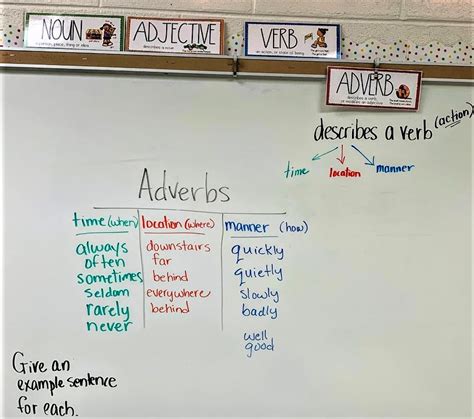 NOUN
a person, place, thing or idea
ADJECTIVE
describes a noun
VERB
an action, or state of being
ADVERB
describes a verb
describes a verb (action)
time location manner
Adverbs
time (when) location (where) manner (how)
always downstairs quickly
often far quietly
sometimes behind slowly
seldom everywhere badly
rarely behind well
never good
Give an
example sentence
for each.